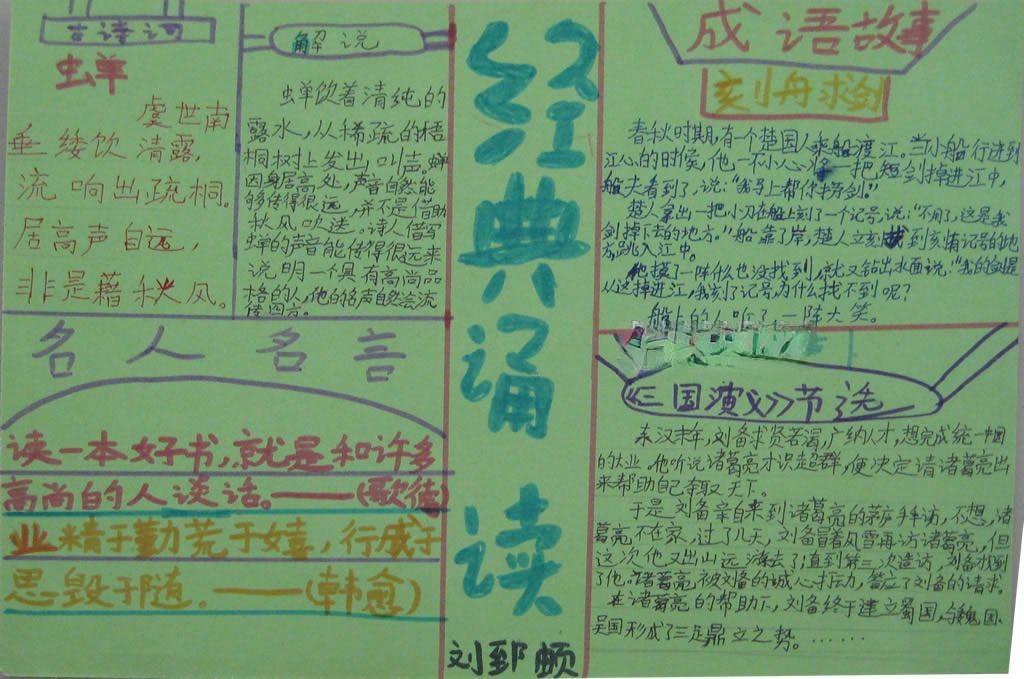 古诗词
蝉
虞世南
垂緌饮清露，
流响出疏桐。
居高声自远，
非是藉秋风。
解说
蝉饮着清纯的
露水，从稀疏的梧
桐树上发出叫声。蝉
因身居高处，声音自然能
够传得很远，并不是借助
秋风吹送。诗人借写
蝉的声音能传得很远来
说明一个具有高尚品
格的人，他的名声自然会流
传四方。
名人名言
读一本好书，就是和许多
高尚的人谈话。——(歌德)
业精于勤荒于嬉，行成于
思毁于随。——(韩愈)
经典诵读
刘郅颀
成语故事
刻舟求剑
春秋时期，有个楚国人乘船渡江。当小船行进到
江心的时候，他一不小心将一把短剑掉进江中，
船夫看到了，说：“我马上帮你捞剑。”
楚人拿出一把小刀在船上刻了一个记号，说：“不用了，这是我
剑掉下去的地方。”船靠了岸，楚人立刻找到刻有记号的地
方，跳入江中。
他摸了一阵什么也没找到，就又钻出水面说：“我的剑是
从这掉进江，我刻了记号，为什么找不到呢？
船上的人听了一阵大笑。
《三国演义》节选
东汉末年，刘备求贤若渴，广纳人才，想完成统一中国
的大业。他听说诸葛亮才识超群，便决定请诸葛亮出
来帮助自己争取天下。
于是刘备亲自来到诸葛亮的茅庐拜访，不想，诸
葛亮不在家，过了几天，刘备冒着风雪再访诸葛亮，但
这次他又出山远游去了，直到第三次造访，刘备找到
了他。诸葛亮被刘备的诚心打动，答应了刘备的请求。
在诸葛亮的帮助下，刘备终于建立蜀国，与魏国、
吴国形成了三足鼎立之势。……